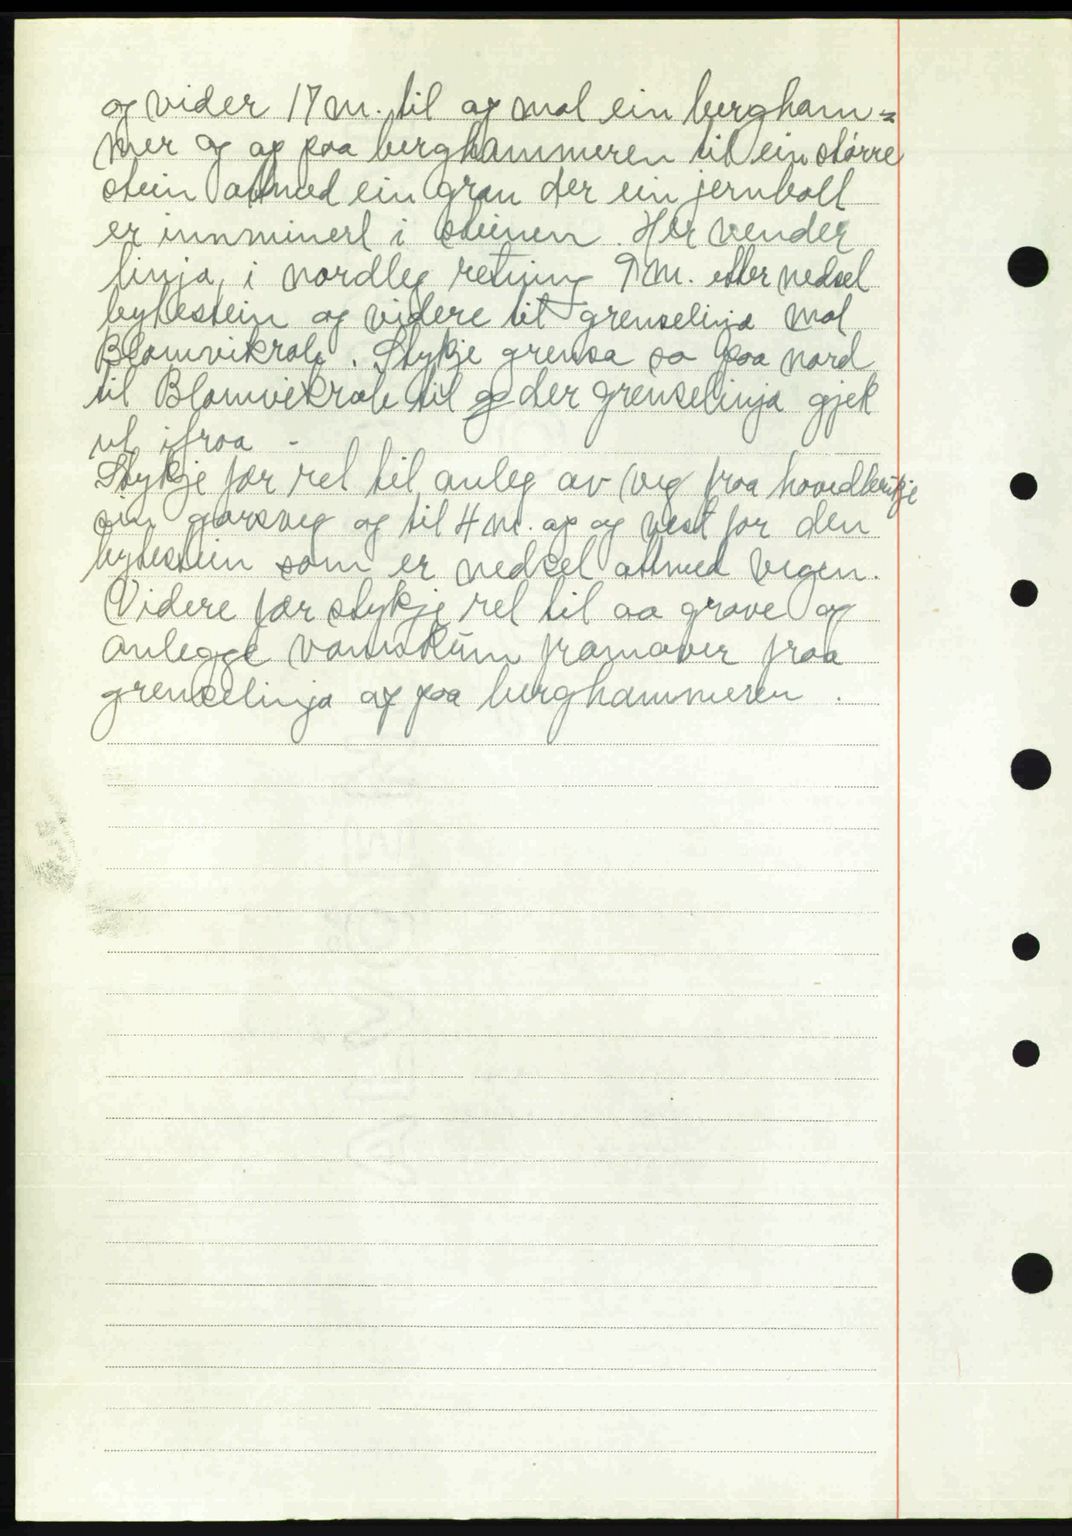 og vider 17 m. til op mot ein bergham=
mer og op paa berghammeren til ein större
stein attmed ein gran der ein jernbolt
er innminert i steinen. Her vender
linja, i nordleg retning 9 m. etter nedset
bytestein og videre til grenselinja mot
Blomvikrab. Stykje grensa so paa nord
til Blomvikrab til der grenselinja gjek
ut ifraa -
Stykje for ret til anleg av veg fraa hovedbrukje
sin garsveg og til 4 m. op og vest for den
bytestein som er nedset attmed vegen.
Videre for stykje ret til aa grave og
anlegge vannkum framover fraa
grenselinja op paa berghammeren.